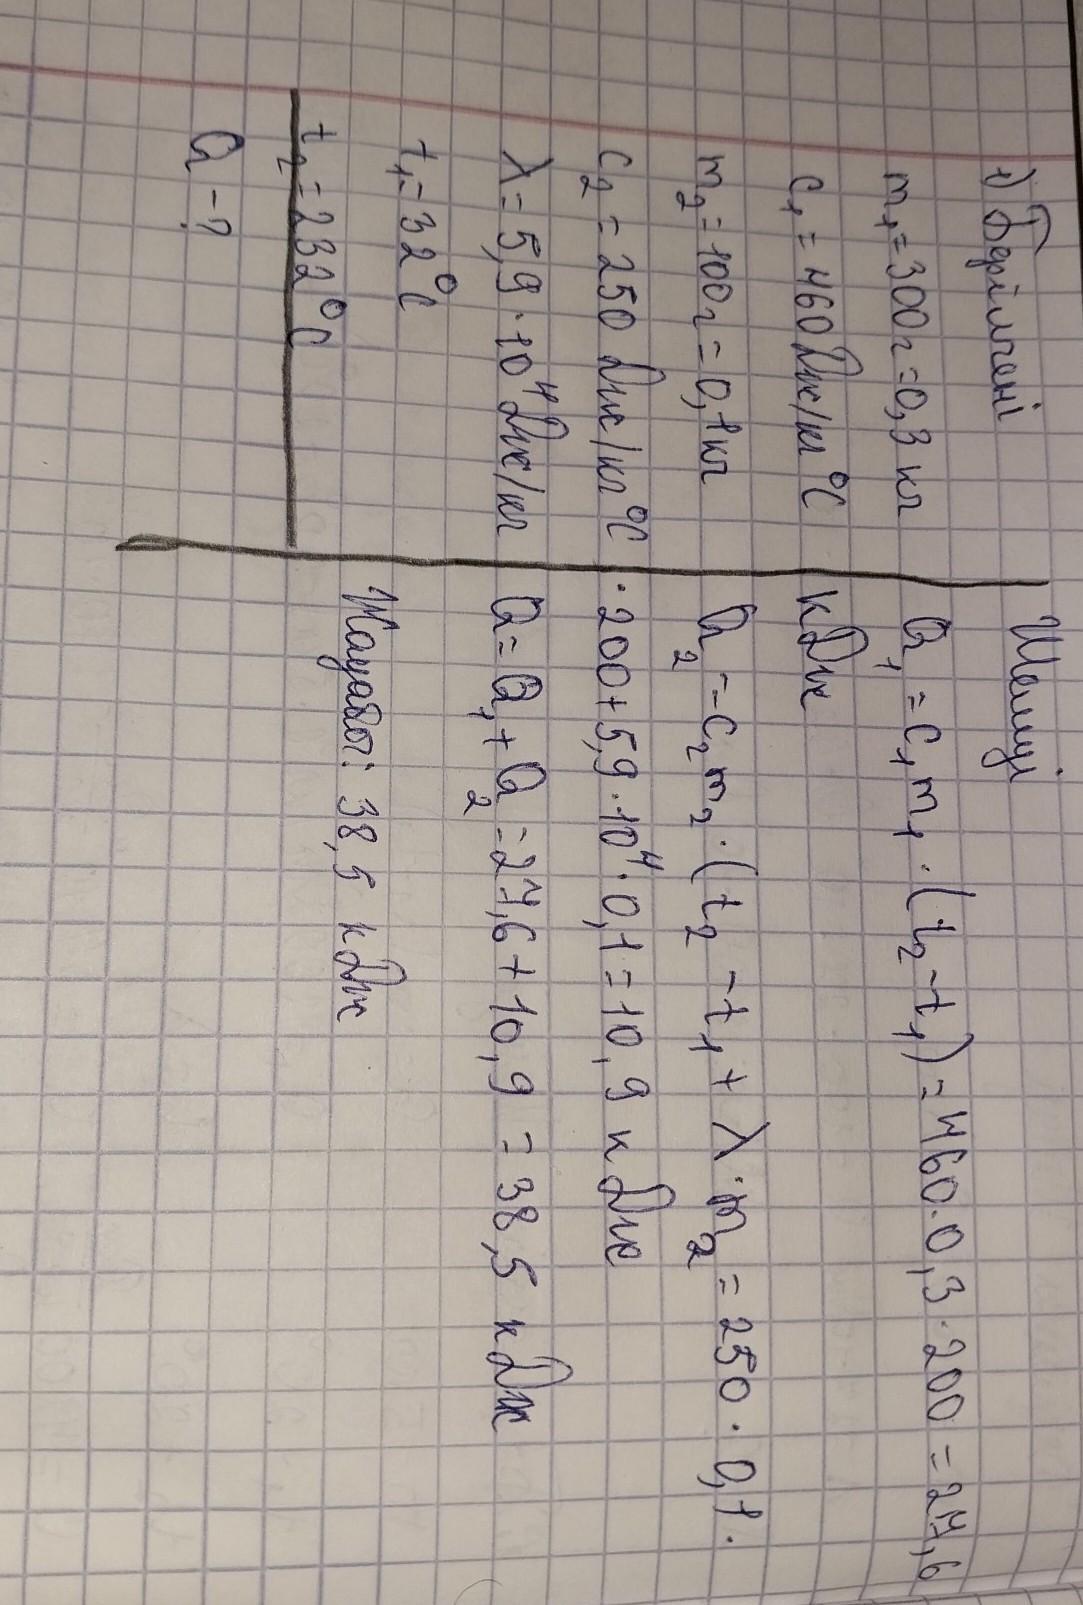 1) Берілгені
m₁=300г=0,3 кг
c₁=460Дж/кг°C
m₂=100г=0,1кг
c₂=250 Дж/кг°C
λ=5,9·10⁴Дж/кг
t₁=32°C
t₂=232°C
Q-?
Шешуі
Q₁=c₁m₁·(t₂-t₁)=460·0,3·200=27,6
кДж
Q₂=c₂m₂·(t₂-t₁+λ·m₂=250·0,1·
·200+5,9·10⁴·0,1=10,9 кДж
Q=Q₁+Q₂=27,6+10,9=38,5 кДж
Жауабы: 38,5 кДж